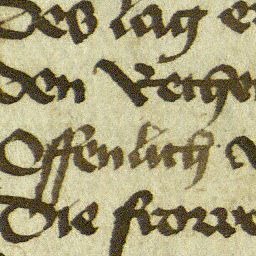 Des lag e
den Reche
Offenlich v
Die frowe